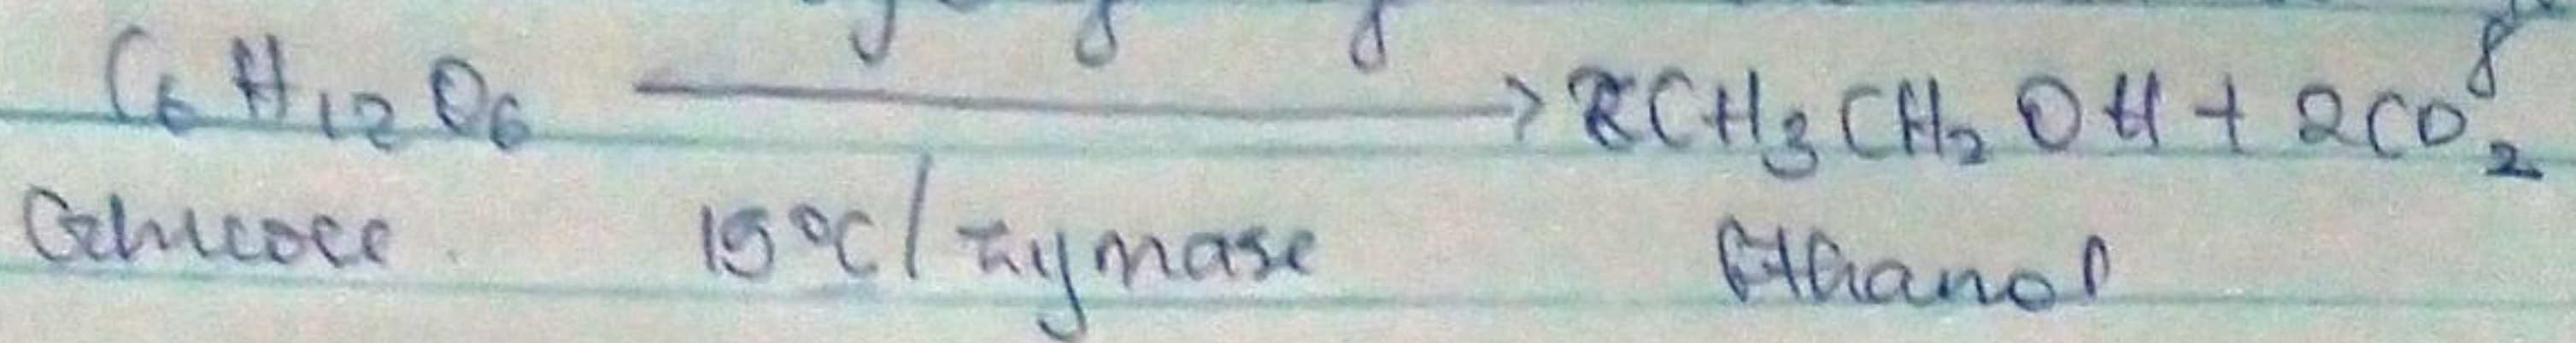 C₆H₁₂O₆ ⟶ 2CH₃CH₂OH + 2CO₂
Glucose. 15°C/zymase Ethanol